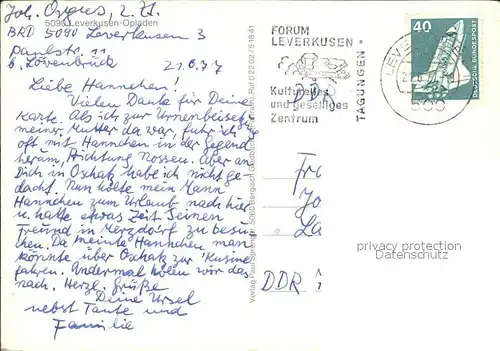 Joh. Orgus, z. Zt.
5090 Leverkusen-Opladen
BRD 5090 Leverkusen 3
Paulstr. 11
b. Lövenbrück 21.6.77
Liebe Hannchen!
Vielen Dank für Deine
Karte. Als ich zur Urnenbeisetzg
meiner Mutter da war, fuhr ich
oft mit Hannchen in der Gegend
herum, Richtung Nossen. Aber an
Dich in Oschatz habe ich nicht ge
dacht. Nun holte mein Mann
Hannchen zum Urlaub nach hier
u. hatte etwas Zeit seinen
Freund in Merzdorf zu besu
chen. Da meinte Hannchen man
könnte über Oschatz zur Kusine
fahren. Andermal holen wir das
nach. Herzl. Grüße
Deine Ursel
nebst Tante und
Familie
FORUM
LEVERKUSEN
Kulturelles
und geselliges
Zentrum
TAGUNGEN
40
DEUTSCHE BUNDESPOST
DDR
Fr
La
DDR
privacy protection
Datenschutz